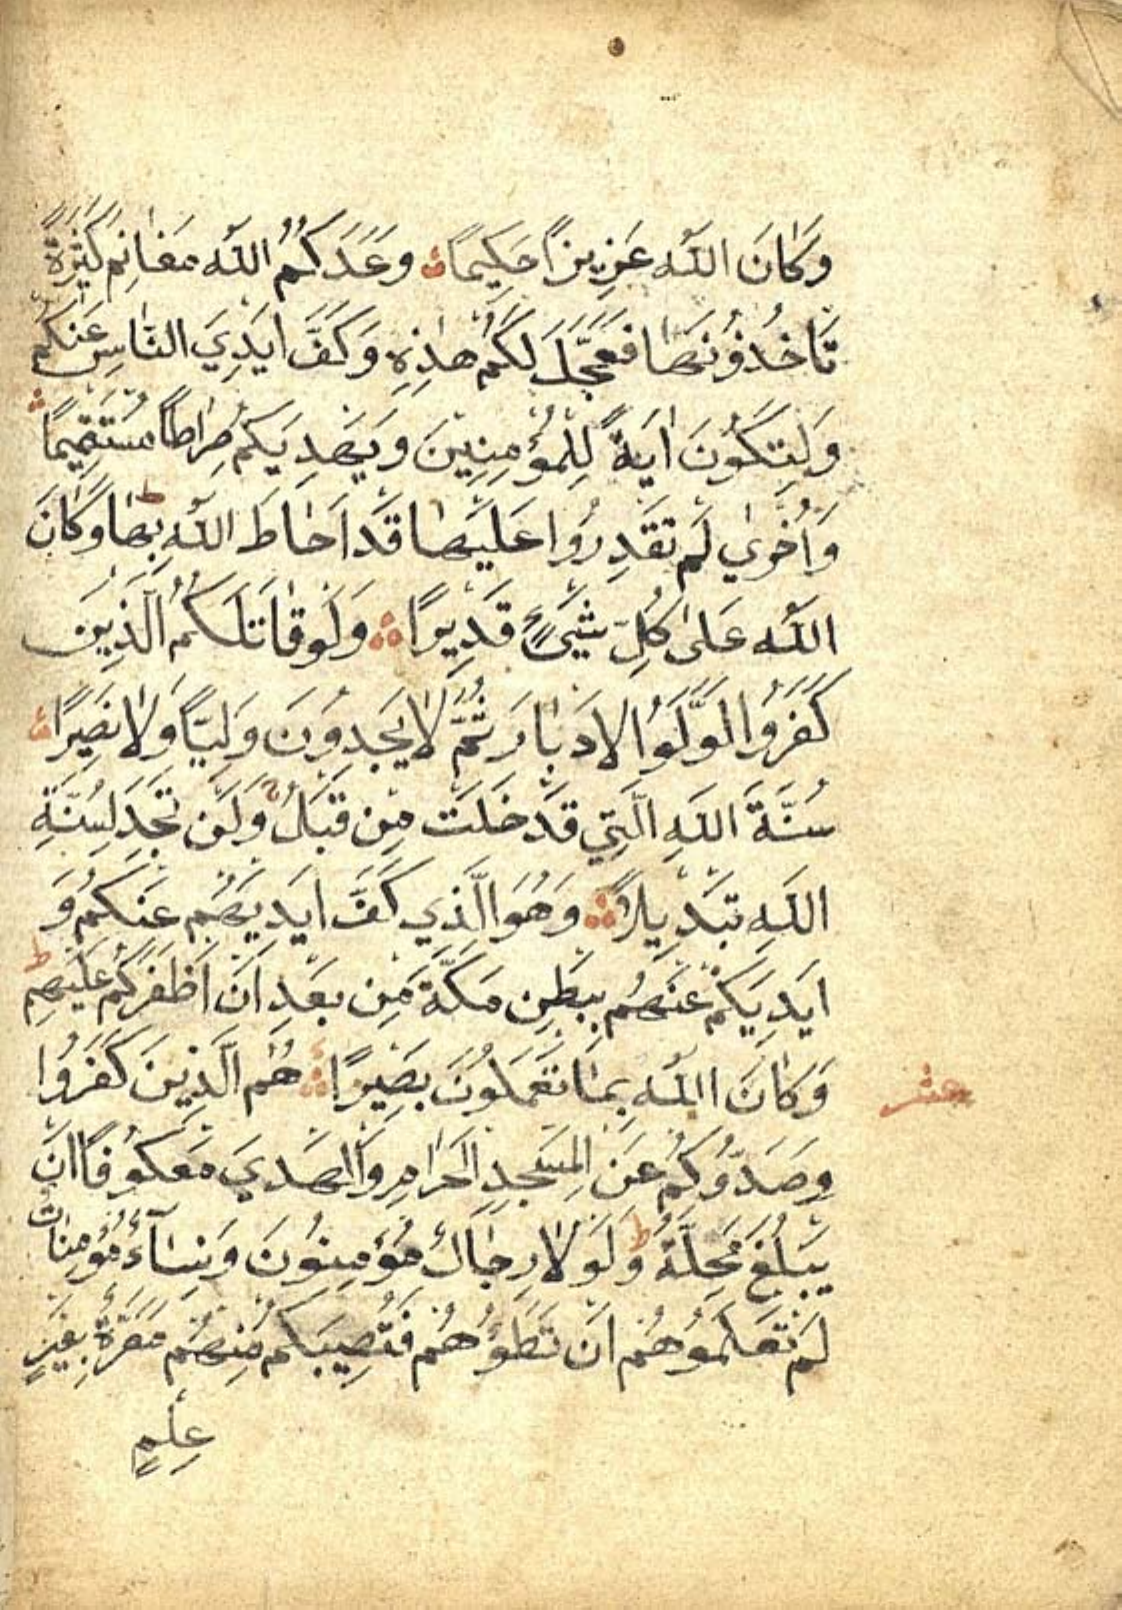 وَكَانَ اللّٰهُ عَزِيزًا حَكِيمًا وَعَدَكُمُ اللّٰهُ مَغَانِمَ كَثِيرَةً
تَأْخُذُونَهَا فَعَجَّلَ لَكُمْ هٰذِهِ وَكَفَّ اَيْدِيَ النَّاسِ عَنْكُمْ
وَلِتَكُونَ اٰيَةً لِلْمُؤْمِنِينَ وَيَهْدِيَكُمْ صِرَاطًا مُسْتَقِيمًا
وَاُخْرٰي لَمْ تَقْدِرُوا عَلَيْهَا قَدْ اَحَاطَ اللّٰهُ بِهَا ط وَكَانَ
اللّٰهُ عَلٰى كُلِّ شَيْءٍ قَدِيرًا وَلَوْ قَاتَلَكُمُ الَّذِينَ
كَفَرُوا لَوَلَّوُا الْاَدْبَارَ ثُمَّ لَا يَجِدُونَ وَلِيًّا وَلَا نَصِيرًا
سُنَّةَ اللّٰهِ الَّتِي قَدْ خَلَتْ مِنْ قَبْلُ وَلَنْ تَجِدَ لِسُنَّةِ
اللّٰهِ تَبْدِيلًا وَهُوَ الَّذِي كَفَّ اَيْدِيَهُمْ عَنْكُمْ وَ
اَيْدِيَكُمْ عَنْهُمْ بِبَطْنِ مَكَّةَ مِنْ بَعْدِ اَنْ اَظْفَرَكُمْ عَلَيْهِمْ ط
وَكَانَ اللّٰهُ بِمَا تَعْمَلُونَ بَصِيرًا هُمُ الَّذِينَ كَفَرُوا
عشر
وَصَدُّوكُمْ عَنِ الْمَسْجِدِ الْحَرَامِ وَالْهَدْيَ مَعْكُوفًا اَنْ
يَبْلُغَ مَحِلَّهُ ط وَلَوْلَا رِجَالٌ مُؤْمِنُونَ وَنِسَآءٌ مُؤْمِنَاتٌ
لَمْ تَعْلَمُوهُمْ اَنْ تَطَؤُهُمْ فَتُصِيبَكُمْ مِنْهُمْ مَعَرَّةٌ بِغَيْرِ
عِلْمٍ